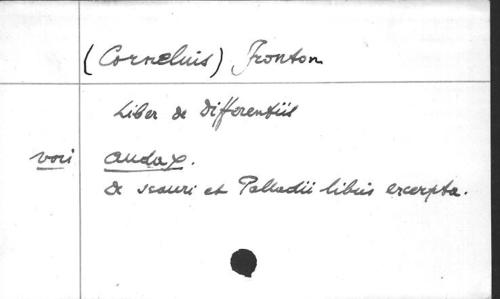 (Cornelius) Fronton
Liber de Differentiis
voir Audax.
De scauri et Palladii libris excerpta.